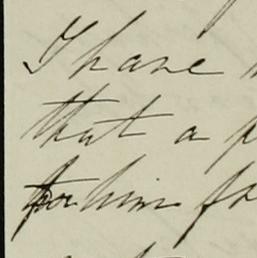 I have
that a
for him